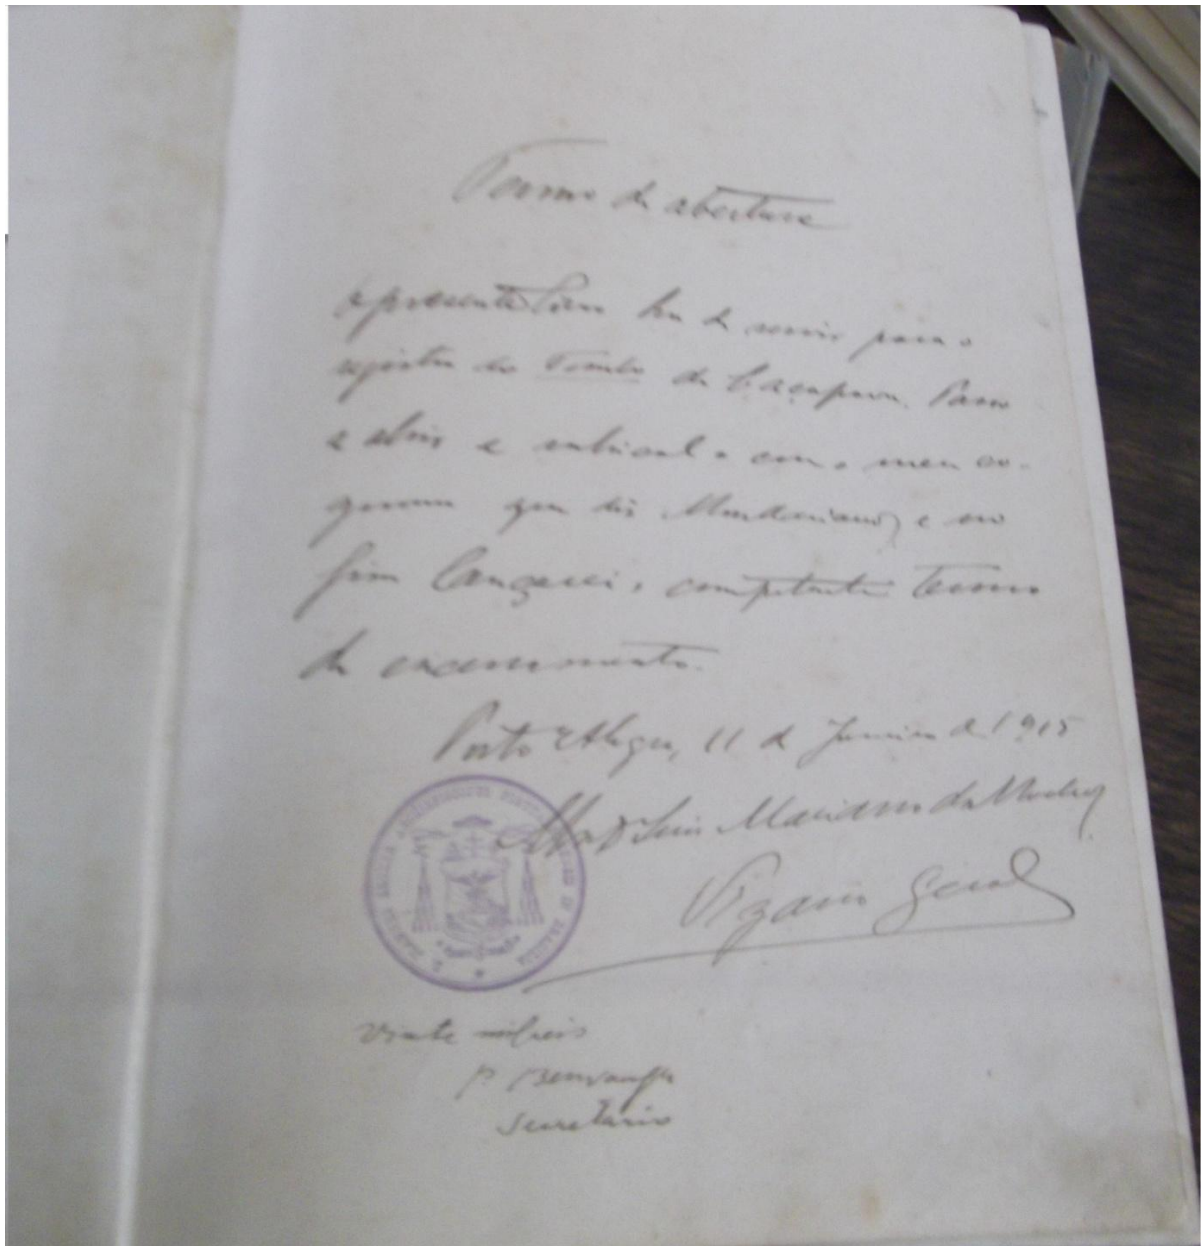 Termo de abertura
O presente livro ha de servir para o
registro do Tombo de Caçapava. Para
o abrir e rubrical-o com o meu co-
gnome que diz Mondariano, e no
fim lançarei o competente termo
de encerramento.
Porto Alegre, 11 de Janeiro de 1915
Luis Mariano da Rocha
Vigario Geral
Vinte milreis
P.
Secretario